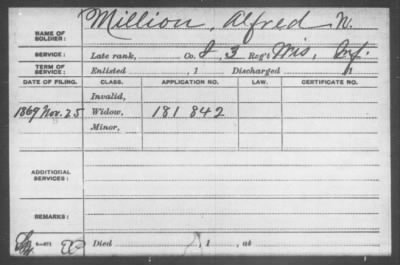 NAME OF SOLDIER: Million, Alfred N.
SERVICE: Late rank, Co. I, 3 Reg't Wis. Inf.
TERM OF SERVICE: Enlisted , 1 Discharged , 1
DATE OF FILING. CLASS. APPLICATION NO. LAW. CERTIFICATE NO.
Invalid,
1869 Nov. 25 Widow, 181 842
Minor,
ADDITIONAL SERVICES:
REMARKS:
Died , 1 , at